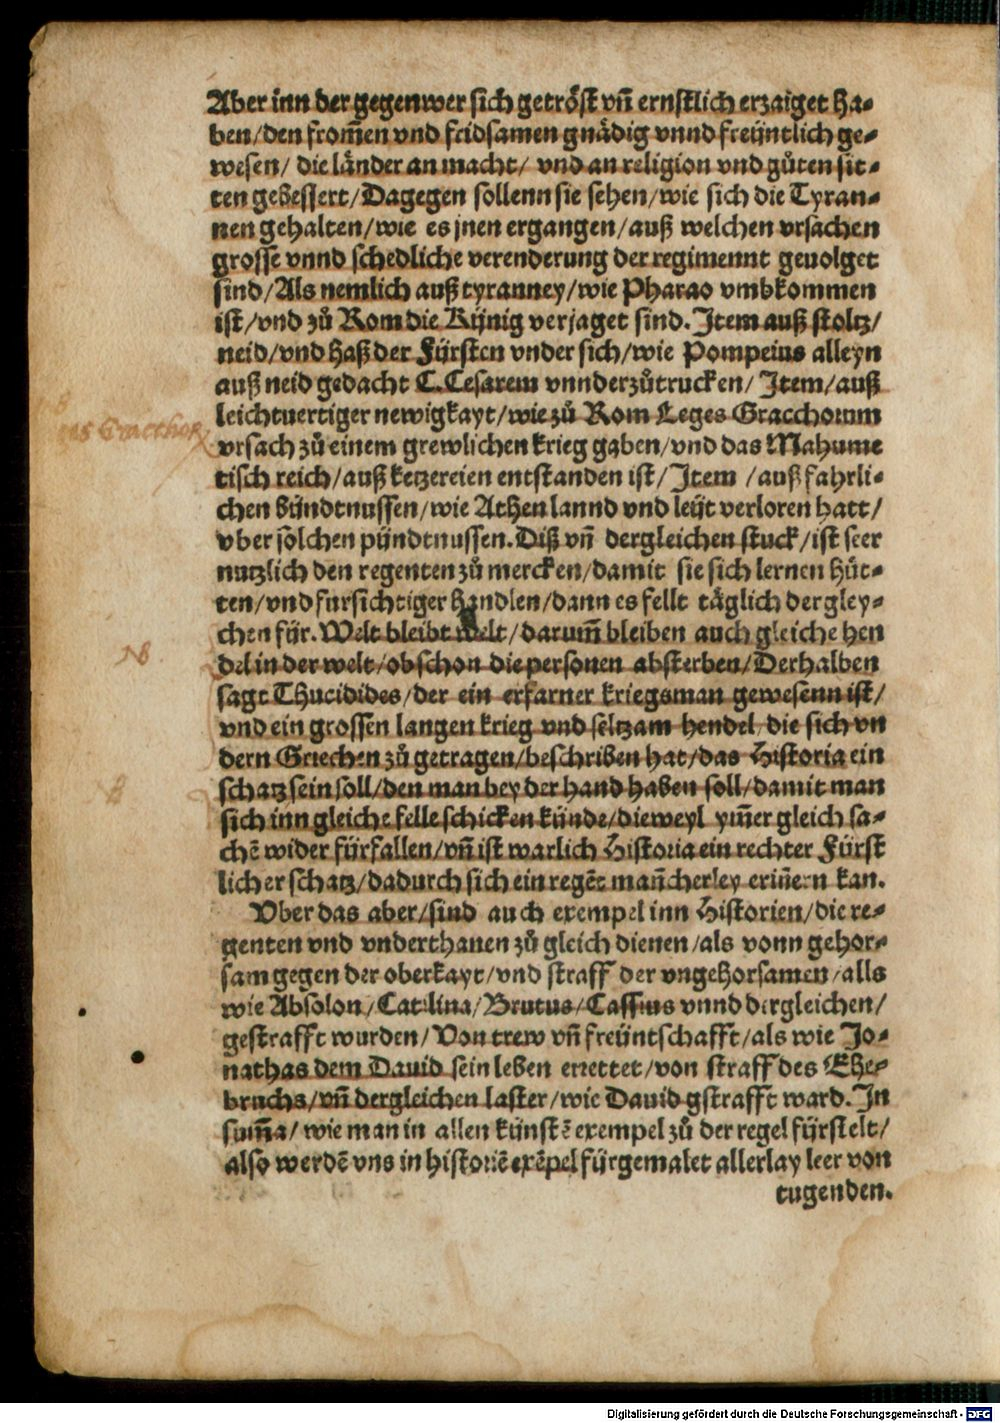 Aber inn der gegenwer sich getröst vñ ernstlich erzaiget ha-
ben/den from̃en vnd fridsamen gnädig vnnd freüntlich ge-
wesen/ die länder an macht/ vnd an religion vnd gůten sit-
ten gebessert/Dagegen sollenn sie sehen/wie sich die Tyran-
nen gehalten/wie es jnen ergangen/auß welchen vrsachen
grosse vnnd schedliche verenderung der regimennt geuolget
sind/Als nemlich auß tyranney/wie Pharao vmbkommen
ist/vnd zů Rom die Künig verjaget sind. Item auß stoltz/
neid/vnd haß der Fürsten vnder sich/wie Pompeius alleyn
auß neid gedacht C. Cesarem vnnderzůtrucken/ Item/auß
leichtuertiger newigkayt/wie zů Rom Leges Gracchorum
vrsach zů einem grewlichen krieg gaben/vnd das Mahume
tisch reich/auß ketzereien entstanden ist/ Item /auß fahrli-
chen bündtnussen/wie Athen lannd vnd leüt verloren hatt/
vber solchen pündtnussen. Diß vñ dergleichen stuck/ist seer
nutzlich den regenten zů mercken/damit sie sich lernen hüt-
ten/vnd fursichtiger handlen/dann es fellt täglich dergley-
chen für. Welt bleibt welt/darum̃ bleiben auch gleiche hen
del in der welt/obschon die personen absterben/Derhalben
sagt Thucidides/der ein erfarner kriegsman gewesenn ist/
vnd ein grossen langen krieg vnd seltzam hendel/die sich vn
dern Griechen zů getragen/beschriben hat/das Historia ein
schatz sein soll/den man bey der hand haben soll/damit man
sich inn gleiche felle schicken künde/dieweyl ym̃er gleich sa-
chẽ wider fürfallen/vñ ist warlich Historia ein rechter Fürst
licher schatz/dadurch sich ein regẽt mañcherley eriñern kan.
Vber das aber/sind auch exempel inn Historien/die re-
genten vnd vnderthanen zů gleich dienen/als vonn gehor-
sam gegen der oberkayt/vnd straff der vngehorsamen/alls
wie Absolon/Catilina/Brutus/Cassius vnnd dergleichen/
gestrafft wurden/Von trew vñ freüntschafft/als wie Jo-
nathas dem Dauid sein leben errettet/von straff des Ehe-
bruchs/vñ dergleichen laster/wie Dauid gstrafft ward. In
sum̃a/wie man in allen künstẽ exempel zů der regel fürstelt/
also werdẽ vns in historiẽ exẽpel fürgemalet allerlay leer von
tugenden.
Gracchor
NB.
Digitalisierung gefördert durch die Deutsche Forschungsgemeinschaft - DFG